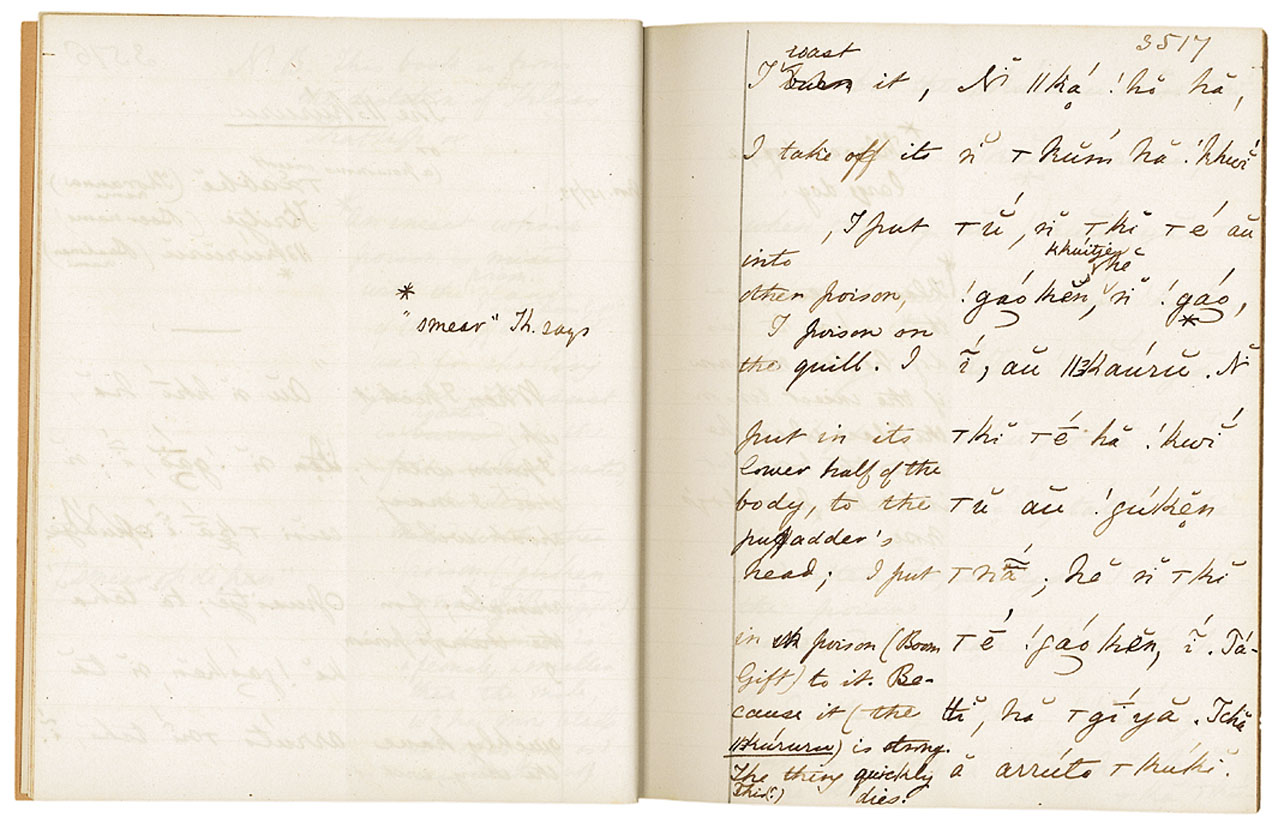 *
"smear" Th. says
3517
roast
I it, Ñ ǁká̤ ! hŏ hă,
I take off its ñ ꞇ kŭḿ hă ! khwĭ́
, I put ꞇ ŭ́, ñ ꞇ kĭ ꞇ é aŭ
into
khúitjen
hĕ
other poison, ! gáo kĕn, ñ ! gáo,
*
I poison on
the quill. I ĭ́, aŭ kaúrŭ. Ñ
put in its ꞇ kĭ ꞇ é̄ hă ! kwĭ́
lower half of the
body, to the ꞇ ŭ aŭ ! gúkĕn
puffadder's
head; I put ꞇ nā́; hĕ ñ ꞇ kĭ
in poison (Boom ꞇ é̄ ! gáo kĕn, ĭ́. Tá-
Gift) to it. Be-
cause it (the ttĭ, hă ꞇ gī́ yă. Tchă
kúruru) is strong.
The thing quickly ă arrúto ꞇ kúkĭ.
This(?) dies.